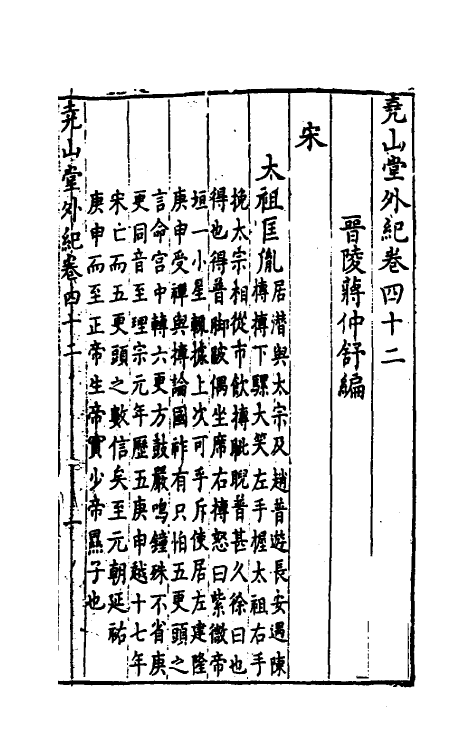 堯山堂外紀卷四十二
晉陵蔣仲舒編
宋
太祖匡胤
居潛與太宗及趙普遊長安遇陳
摶摶下騾大笑左手握太祖右手
挽太宗相從市飲摶睥睨普甚久徐曰也
得也得普脚跛偶坐席右摶怒曰紫微帝
垣一小星輒據上次可乎斥使居左建隆
庚申受禪與摶論國祚有只怕五更頭之
言命宮中轉六更方鼓嚴鳴鐘殊不省庚
更同音至理宗元年歷五庚申越十七年
宋亡而五更頭之數信矣至元朝延祐
庚申而至正帝生帝實少帝㬎子也
堯山堂外紀卷四十二 一